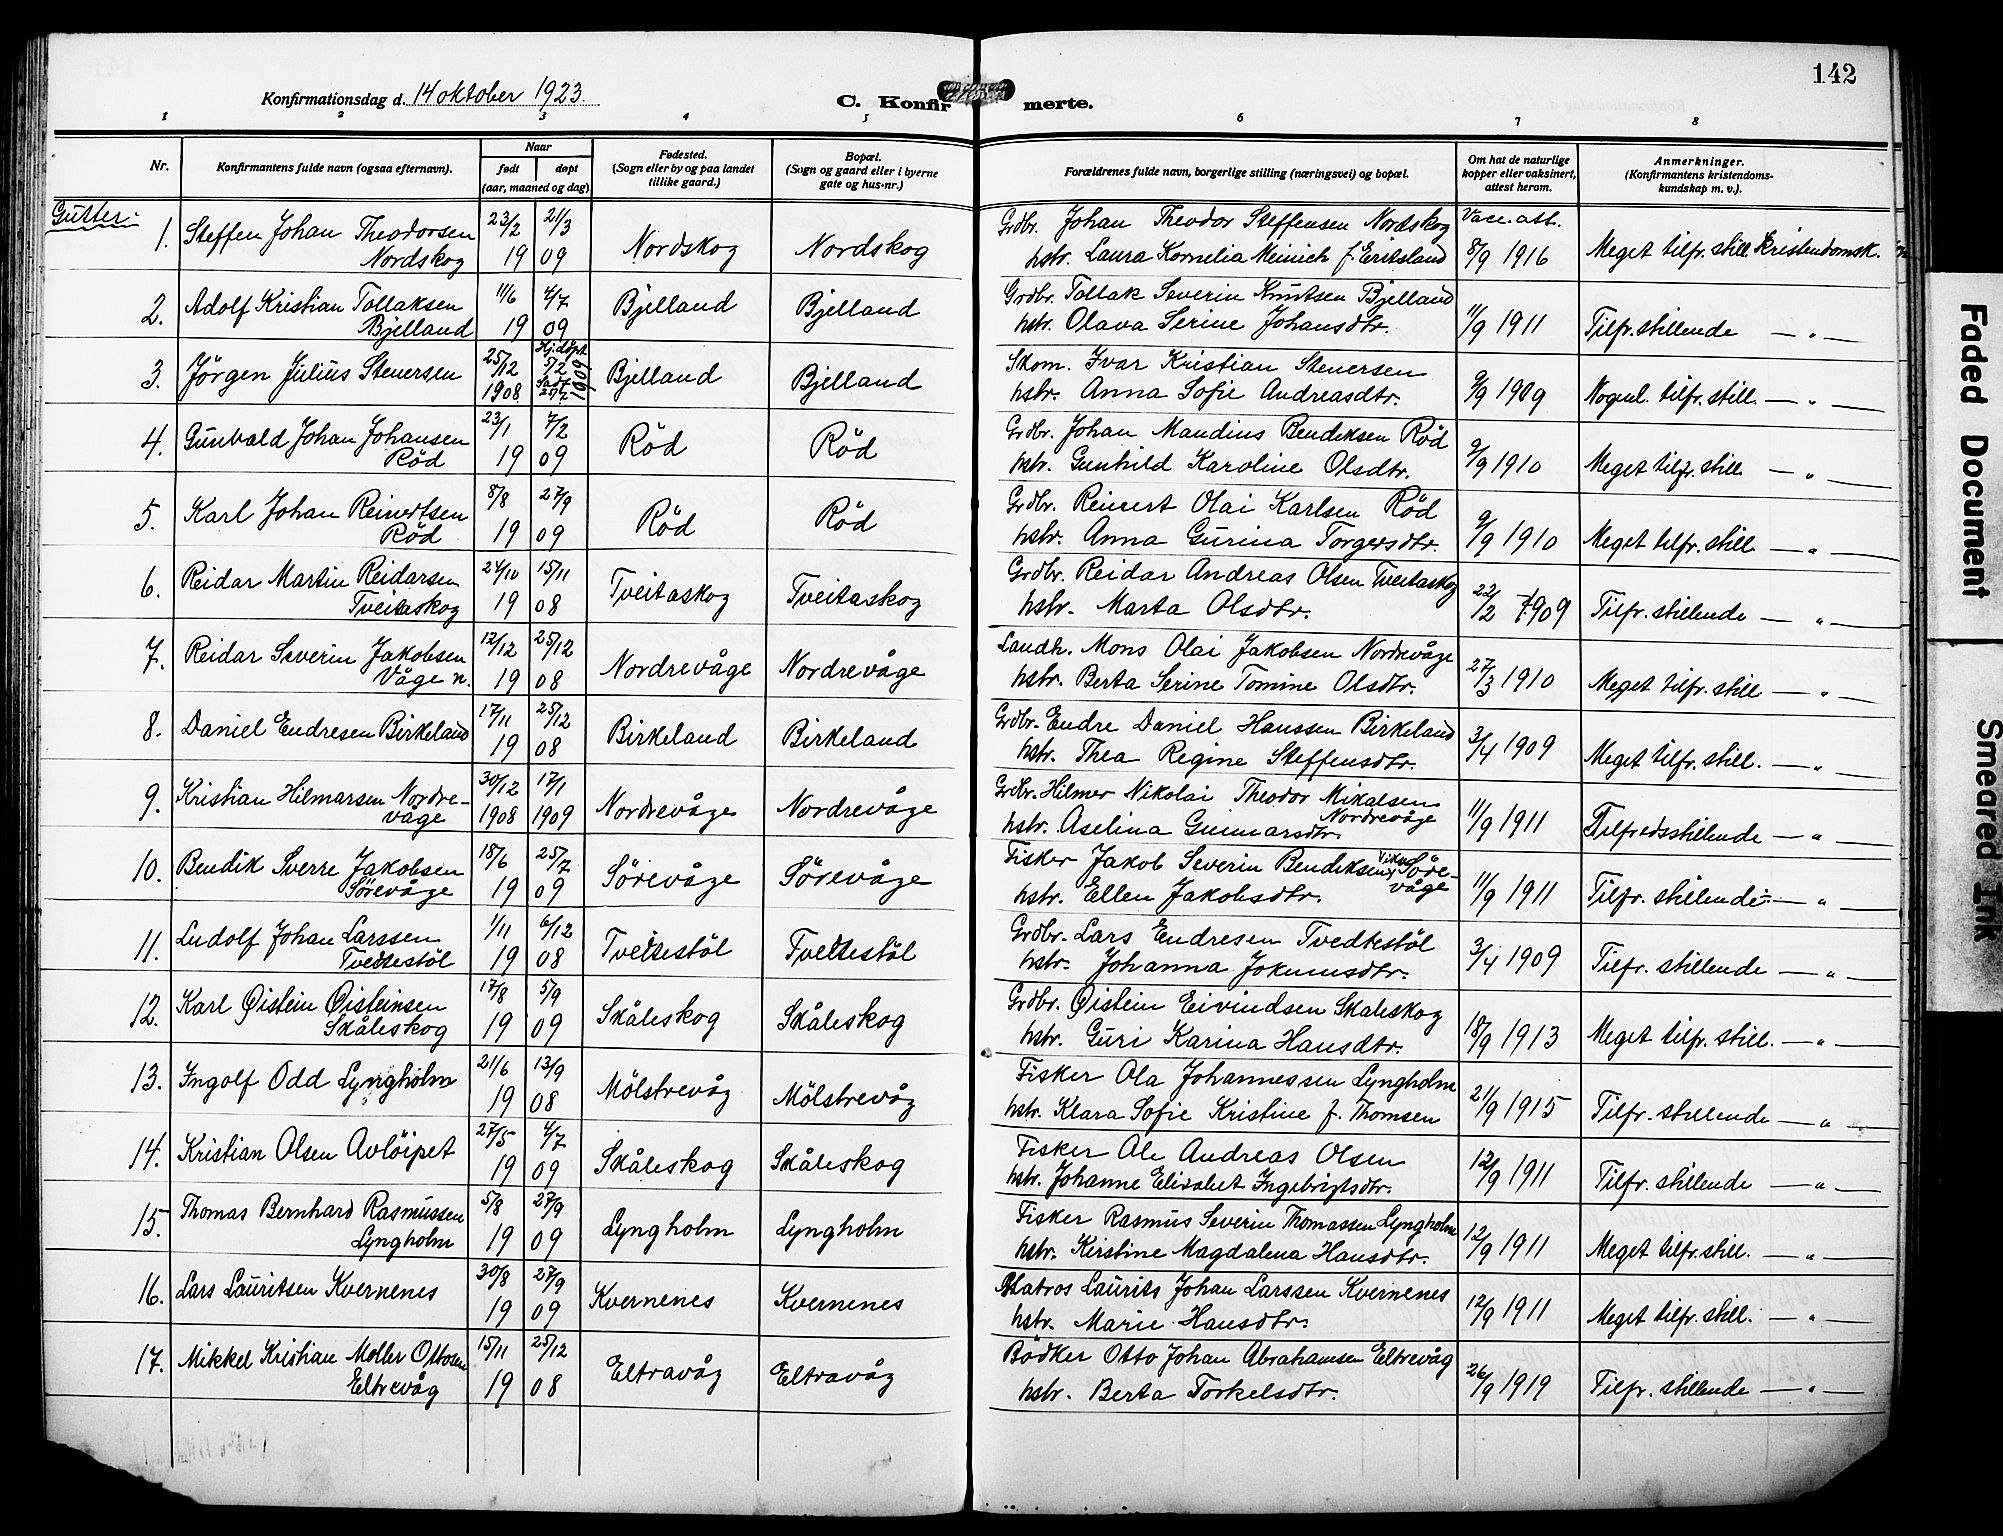 142
Konfirmationsdag d. 14 oktober 1923.
C. Konfirmerte.
1 2 3 4 5 6 7 8
Nr.
Konfirmantens fulde navn (ogsaa efternavn).
Naar
født døpt
(aar, maaned og dag)
Fødested.
(Sogn eller by og paa landet
tillike gaard.)
Bopæl.
(Sogn og gaard eller i byerne
gate og hus-nr.)
Forældrenes fulde navn, borgerlige stilling (næringsvei) og bopæl.
Om hat de naturlige
kopper eller vaksinert,
attest herom.
Anmerkninger.
(Konfirmantens kristendoms-
kundskap m. v.).
Gutter:
1. Steffen Johan Theodorsen 23/2 21/3 Grdbr. Johan Theodor Steffensen Nordskog Vacc. att.
Nordskog 19 09 Nordskog Nordskog hstr. Laura Kornelia Meinich f. Eritsland 8/9 1916 Meget tilfr. still. Kristendomsk.
2. Adolf Kristian Tollaksen 11/6 4/7 Bjelland Bjelland Grdbr. Tollak Severin Knutsen Bjelland
Bjelland 19 09 hstr. Olava Serine Johansdtr. 11/9 1911 Tilfr. stillende — " —
3. Jørgen Julius Stenersen 25/12 1908 Hj. døpt 5/2 1909 Bjelland Bjelland Skom. Ivar Kristian Stenersen
hstr. Anna Sofie Andreasdtr. 9/9 1909 Nogenl. tilfr. still. — " —
4. Gunvald Johan Johansen 23/1 7/2 Röd Röd Grdbr. Johan Mandius Bendiksen Röd
Röd 19 09 hstr. Gunhild Karoline Olsdtr. 9/9 1910 Meget tilfr. still — " —
5. Karl Johan Reinertsen 8/8 27/9 Röd Röd Grdbr. Reinert Olai Karlsen Röd
Röd 19 09 hstr. Anna Gurina Torgersdtr. 9/9 1910 Meget tilfr. still — " —
6. Reidar Martin Reidarsen 24/10 15/11 Tveitaskog Tveitaskog Grdbr. Reidar Andreas Olsen Tveitaskog
Tveitaskog 19 08 hstr. Marta Olsdtr. 22/2 1909 Tilfr. stillende — " —
7. Reidar Severin Jakobsen 12/12 25/12 Nordrevåge Nordrevåge Landh. Mons Olai Jakobsen Nordrevåge
Våge n. 19 08 hstr. Berta Serine Tomine Olsdtr. 27/3 1910 Meget tilfr. still — " —
8. Daniel Endresen Birkeland 17/11 25/12 Birkeland Birkeland Grdbr. Endre Daniel Hanssen Birkeland
19 08 hstr. Thea Regine Steffensdtr. 3/4 1909 Meget tilfr. still. — " —
9. Kristian Hilmarsen Nordre- 30/12 17/1 Nordrevåge Nordrevåge Grdbr. Hilmer Nikolai Theodor Mikalsen
våge 1908 1909 hstr. Aselina Gunnarsdtr. Nordrevåge 11/9 1911 Tilfredsstillende — " —
10. Bendik Sverre Jakobsen 18/6 25/7 Sörevåge Sörevåge Fisker Jakob Severin Bendiksen Söre-
Sörevåge 19 09 hstr. Ellen Jakobsdtr. våge 11/9 1911 Tilfr. stillende — " —
11. Ludolf Johan Larssen 1/11 6/12 Tvedtestöl Tvedtestöl Grdbr. Lars Endresen Tvedtestöl
Tvedtestöl 19 08 hstr. Johanna Jokumsdtr. 3/4 1909 Tilfr. stillende — " —
12. Karl Øistein Øisteinsen 17/8 5/9 Skåleskog Skåleskog Grdbr. Øistein Eivindsen Skaleskog
Skåleskog 19 09 hstr. Guri Karina Hansdtr. 18/9 1913 Meget tilfr. still. — " —
13. Ingolf Odd Lyngholm 21/6 13/9 Mölstrevåg Mölstrevåg Fisker Ola Johannessen Lyngholm
19 08 hstr. Klara Sofie Kristine f. Thomsen 21/9 1915 Tilfr. stillende — " —
14. Kristian Olsen Avlöipet 27/5 4/7 Skåleskog Skåleskog Fisker Ole Andreas Olsen
19 09 hstr. Johanne Elisabet Ingebrigtsdtr. 12/9 1911 Tilfr. stillende — " —
15. Thomas Bernhard Rasmussen 5/8 27/9 Lyngholm Lyngholm Fisker Rasmus Severin Thomassen Lyngholm
Lyngholm 19 09 hstr. Kirstine Magdalena Hansdtr. 12/9 1911 Meget tilfr. still. — " —
16. Lars Lauritsen Kvernenes 30/8 27/9 Kvernenes Kvernenes Matros Laurits Johan Larssen Kvernenes
19 09 hstr. Marie Hansdtr. 12/9 1911 Meget tilfr. still. — " —
17. Mikkel Kristian Møller Ottosen 15/11 25/12 Eltravåg Eltravåg Bödker Otto Johan Abrahamsen Eltrevåg
Eltrevåg 19 08 hstr. Berta Torkelsdtr. 26/9 1919 Tilfr. stillende — " —
Faded Document
Smeared Ink